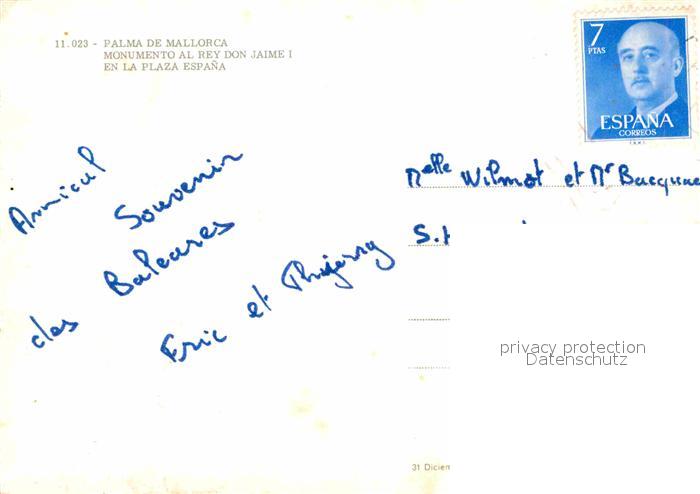 11.023 - PALMA DE MALLORCA
MONUMENTO AL REY DON JAIME I
EN LA PLAZA ESPAÑA
7
PTAS
ESPAÑA
CORREOS
Amical Souvenir
des Baleares
Eric et Thijerry
Melle Wilmot et Mr Bacquae
S.t
privacy protection
Datenschutz
31 Dicien